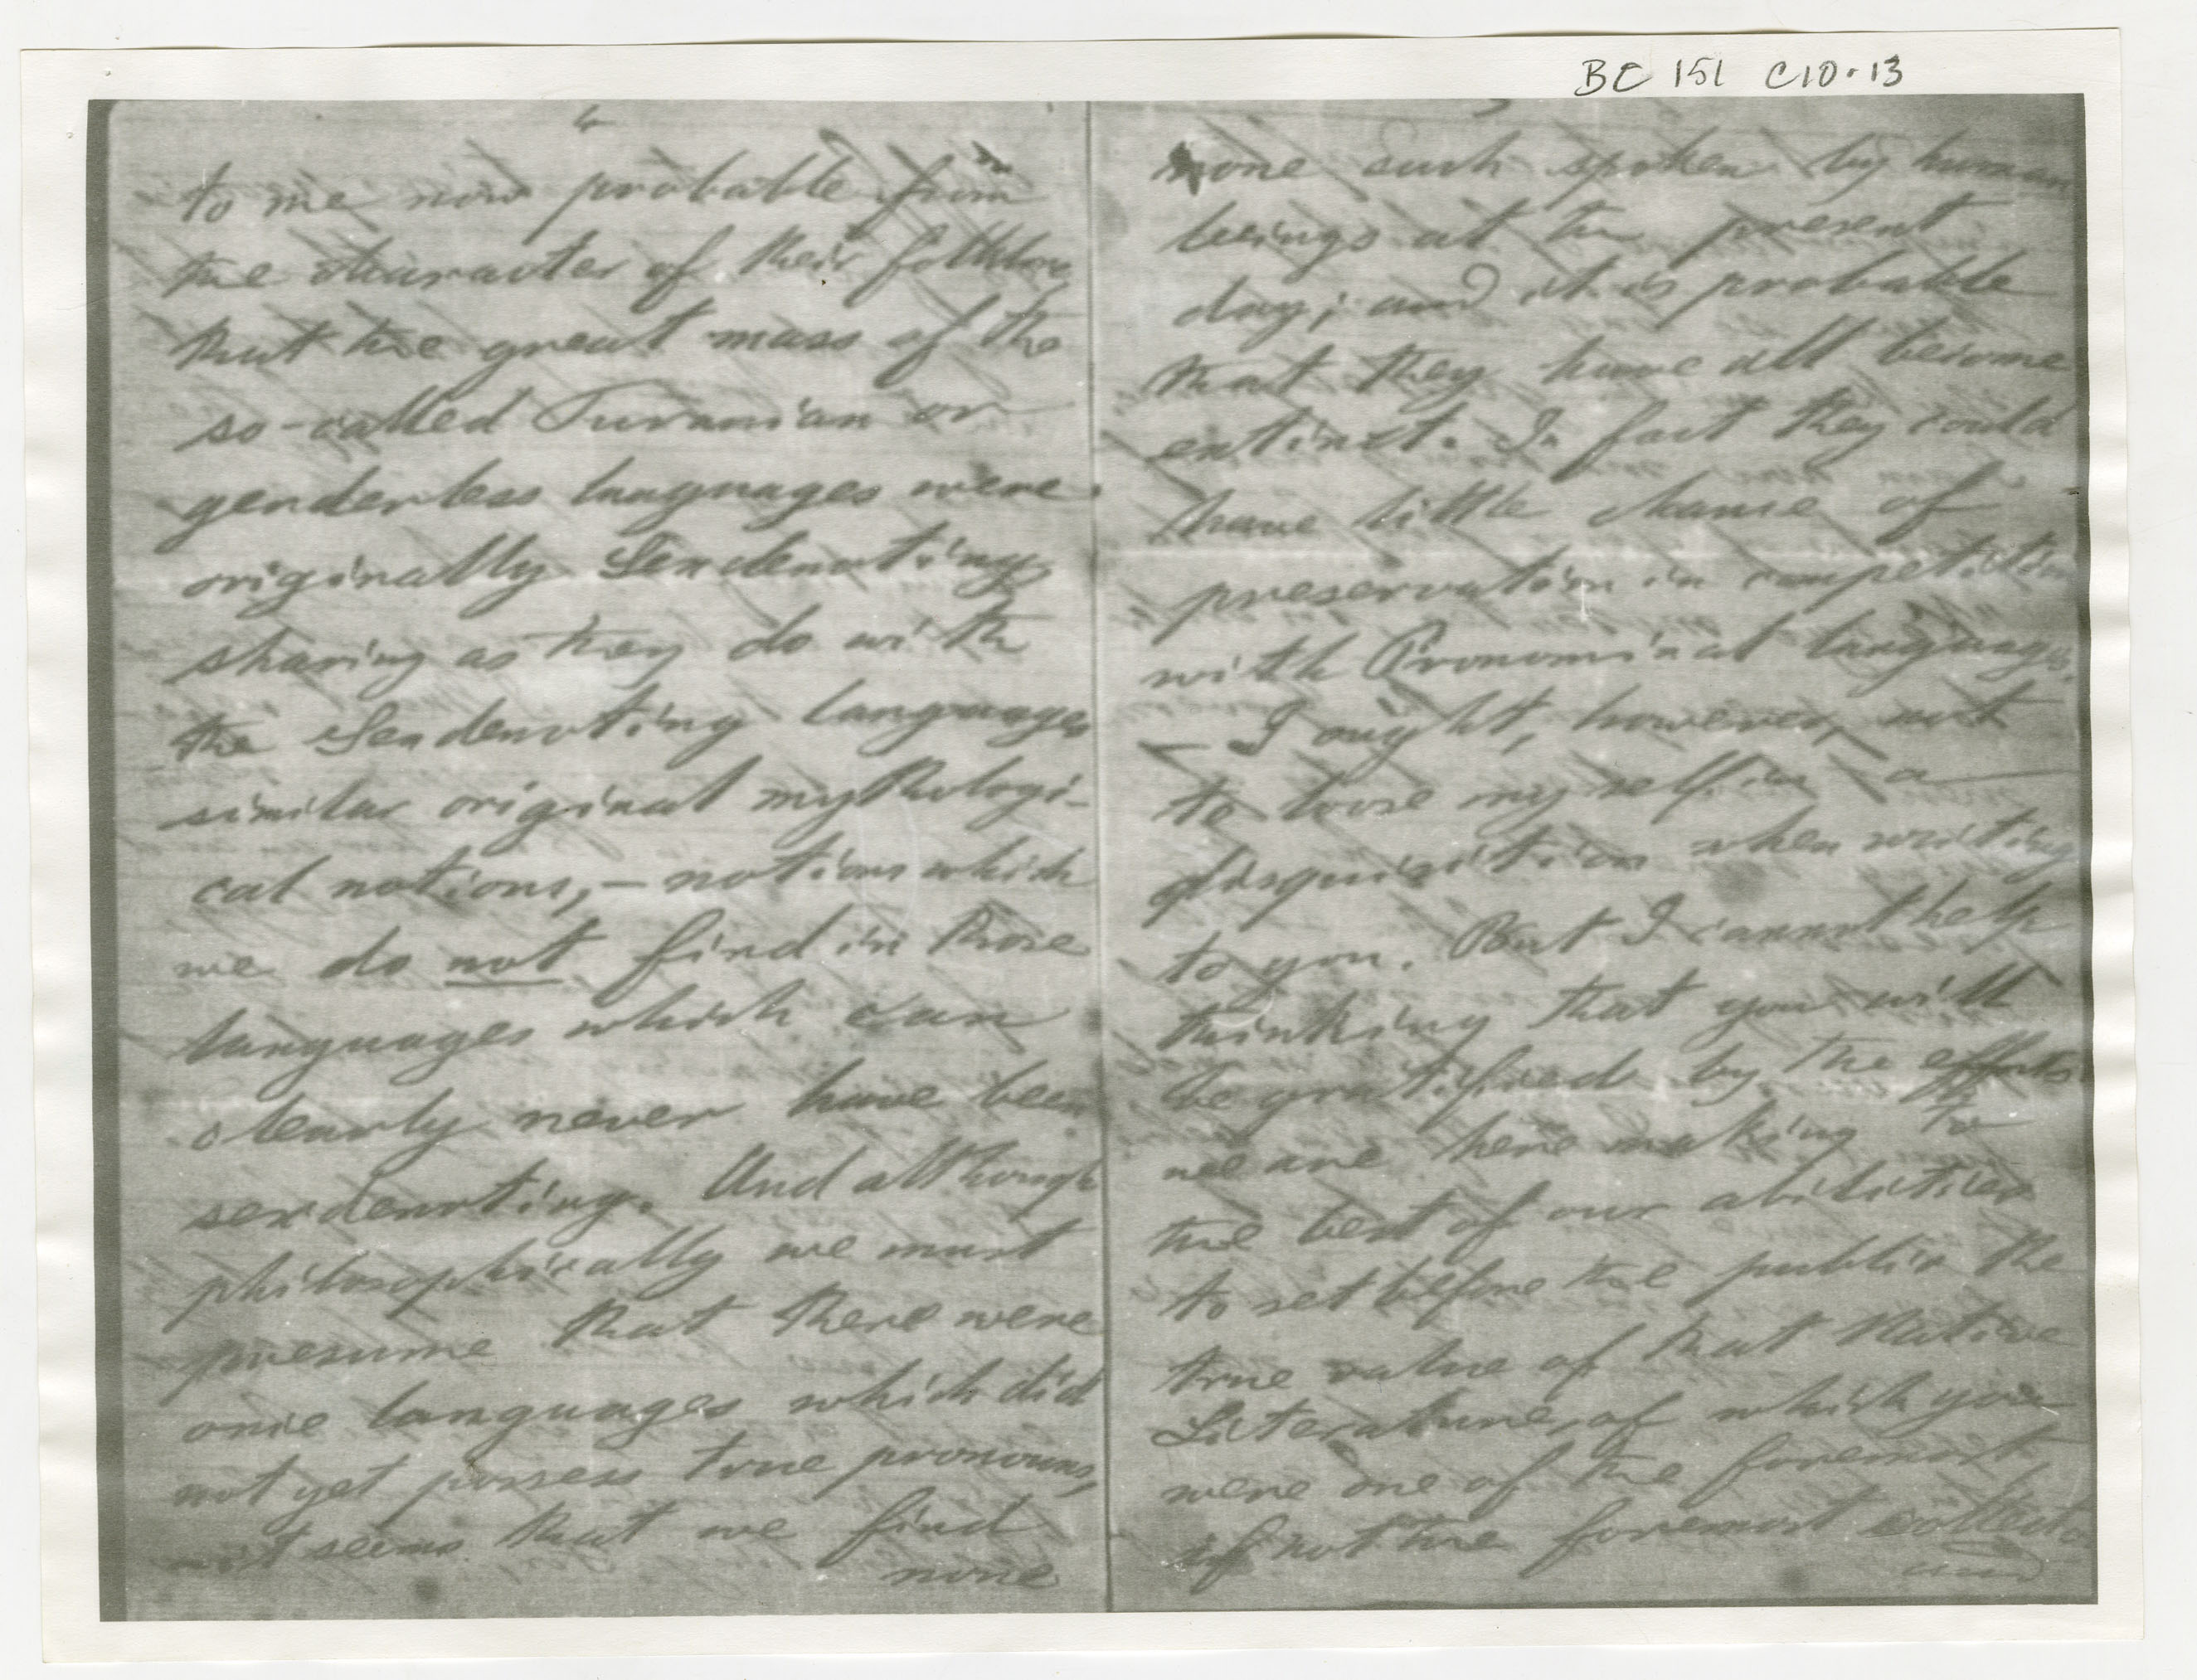 BC 151 C10.13
4
to me now probable from
the character of their folklore
that the great mass of the
so-called Turanian or
genderless languages were
originally Sexdenoting
sharing as they do with
the Sexdenoting languages
similar original mythologi-
cal notions, — notions which
we do not find in those
languages which can
clearly never have been
sexdenoting. And although
philosophically we must
presume that there were
once languages which did
not yet possess true pronouns,
it seems that we find
none
5
none such spoken by human
beings at the present
day; and it is probable
that they have all become
extinct. In fact they could
have little chance of
preservation in competition
with Pronominal languages.
— I ought, however, not
to loose myself in a
disquisition when writing
to you. But I cannot help
thinking that you will
be gratified by the efforts
we are here making to
the best of our abilities
to set before the public the
true value of that Native
Literature, of which you
were one of the foremost,
if not the foremost collector
and